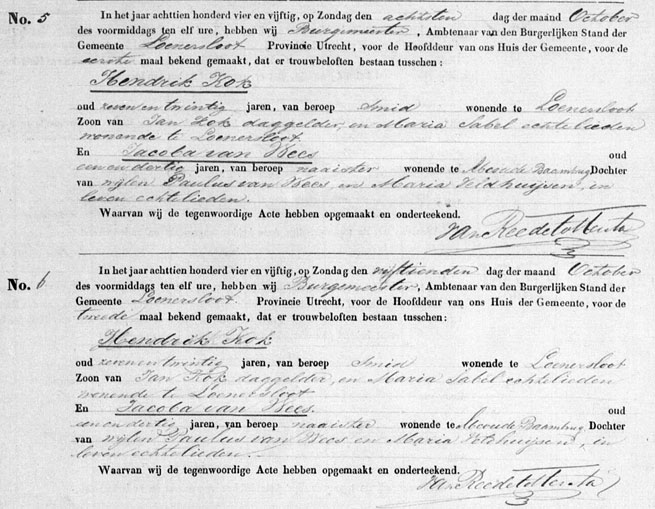 No. 5 In het jaar achttien honderd vier en vijftig, op Zondag den achtsten dag der maand October
des voormiddags ten elf ure, hebben wij Burgemeester, Ambtenaar van den Burgerlijken Stand der
Gemeente Loenersloot Provincie Utrecht, voor de Hoofddeur van ons Huis der Gemeente, voor de
eerste maal bekend gemaakt, dat er trouwbeloften bestaan tusschen:
Hendrik Kok
oud zeven en twintig jaren, van beroep Smid wonende te Loenersloot
Zoon van Jan Kok daggelder, en Maria Sabel echtelieden
wonende te Loenersloot.
En Jacoba van Wees oud
een en dertig jaren, van beroep naaister wonende te Abcoude Baambrug Dochter
van wijlen Paulus van Wees, en Maria in
leven echtelieden.
Waarvan wij de tegenwoordige Acte hebben opgemaakt en onderteekend.
Van Reede tot
No. 6 In het jaar achttien honderd vier en vijftig, op Zondag den vijftienden dag der maand October
des voormiddags ten elf ure, hebben wij Burgemeester, Ambtenaar van den Burgerlijken Stand der
Gemeente Loenersloot. Provincie Utrecht, voor de Hoofddeur van ons Huis der Gemeente, voor de
tweede maal bekend gemaakt, dat er trouwbeloften bestaan tusschen:
Hendrik Kok
oud zeven en twintig jaren, van beroep Smid wonende te Loenersloot
Zoon van Jan Kok daggelder, en Maria Sabel echtelieden
wonende te Loenersloot
En Jacoba van Wees. oud
een en dertig jaren, van beroep naaister wonende te Abcoude Baambrug Dochter
van wijlen Paulus van Wees en Maria in
leven echtelieden.
Waarvan wij de tegenwoordige Acte hebben opgemaakt en onderteekend.
Van Reede tot